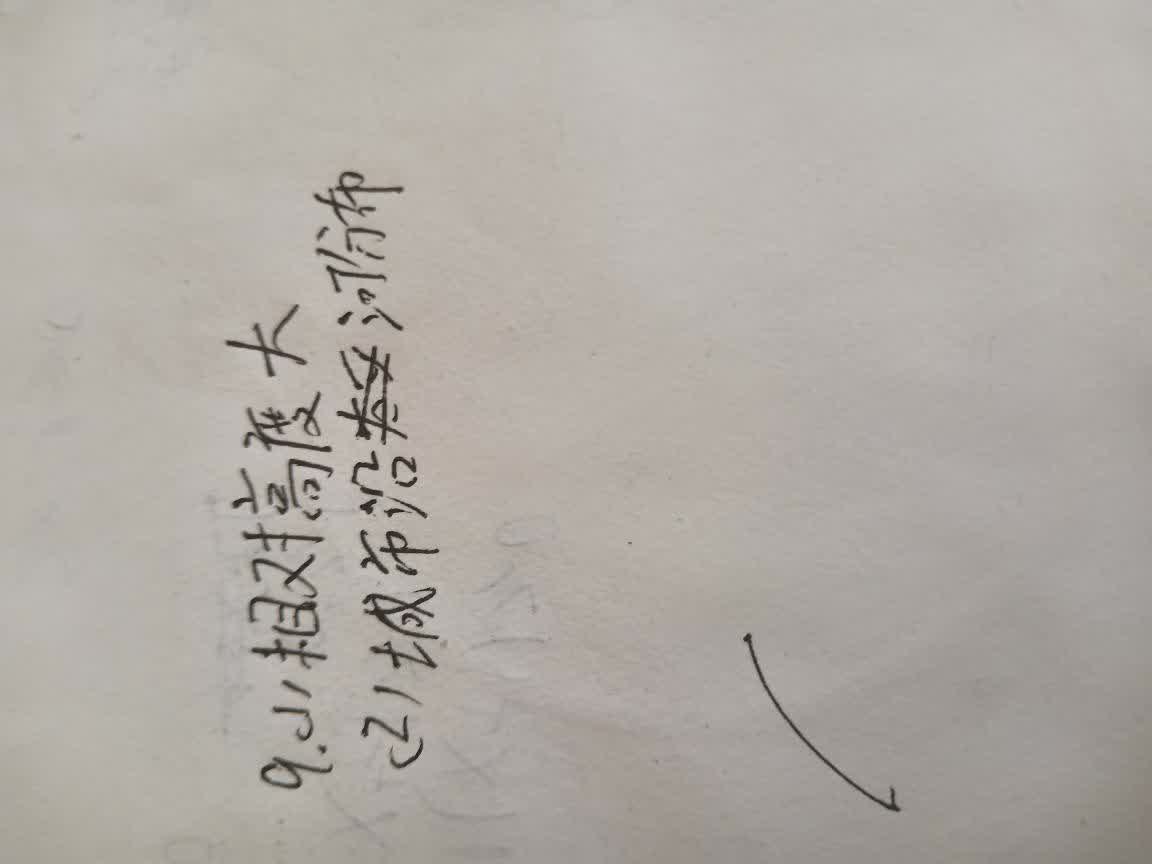 9.(1)相对高度大
(2)城市沿河分布